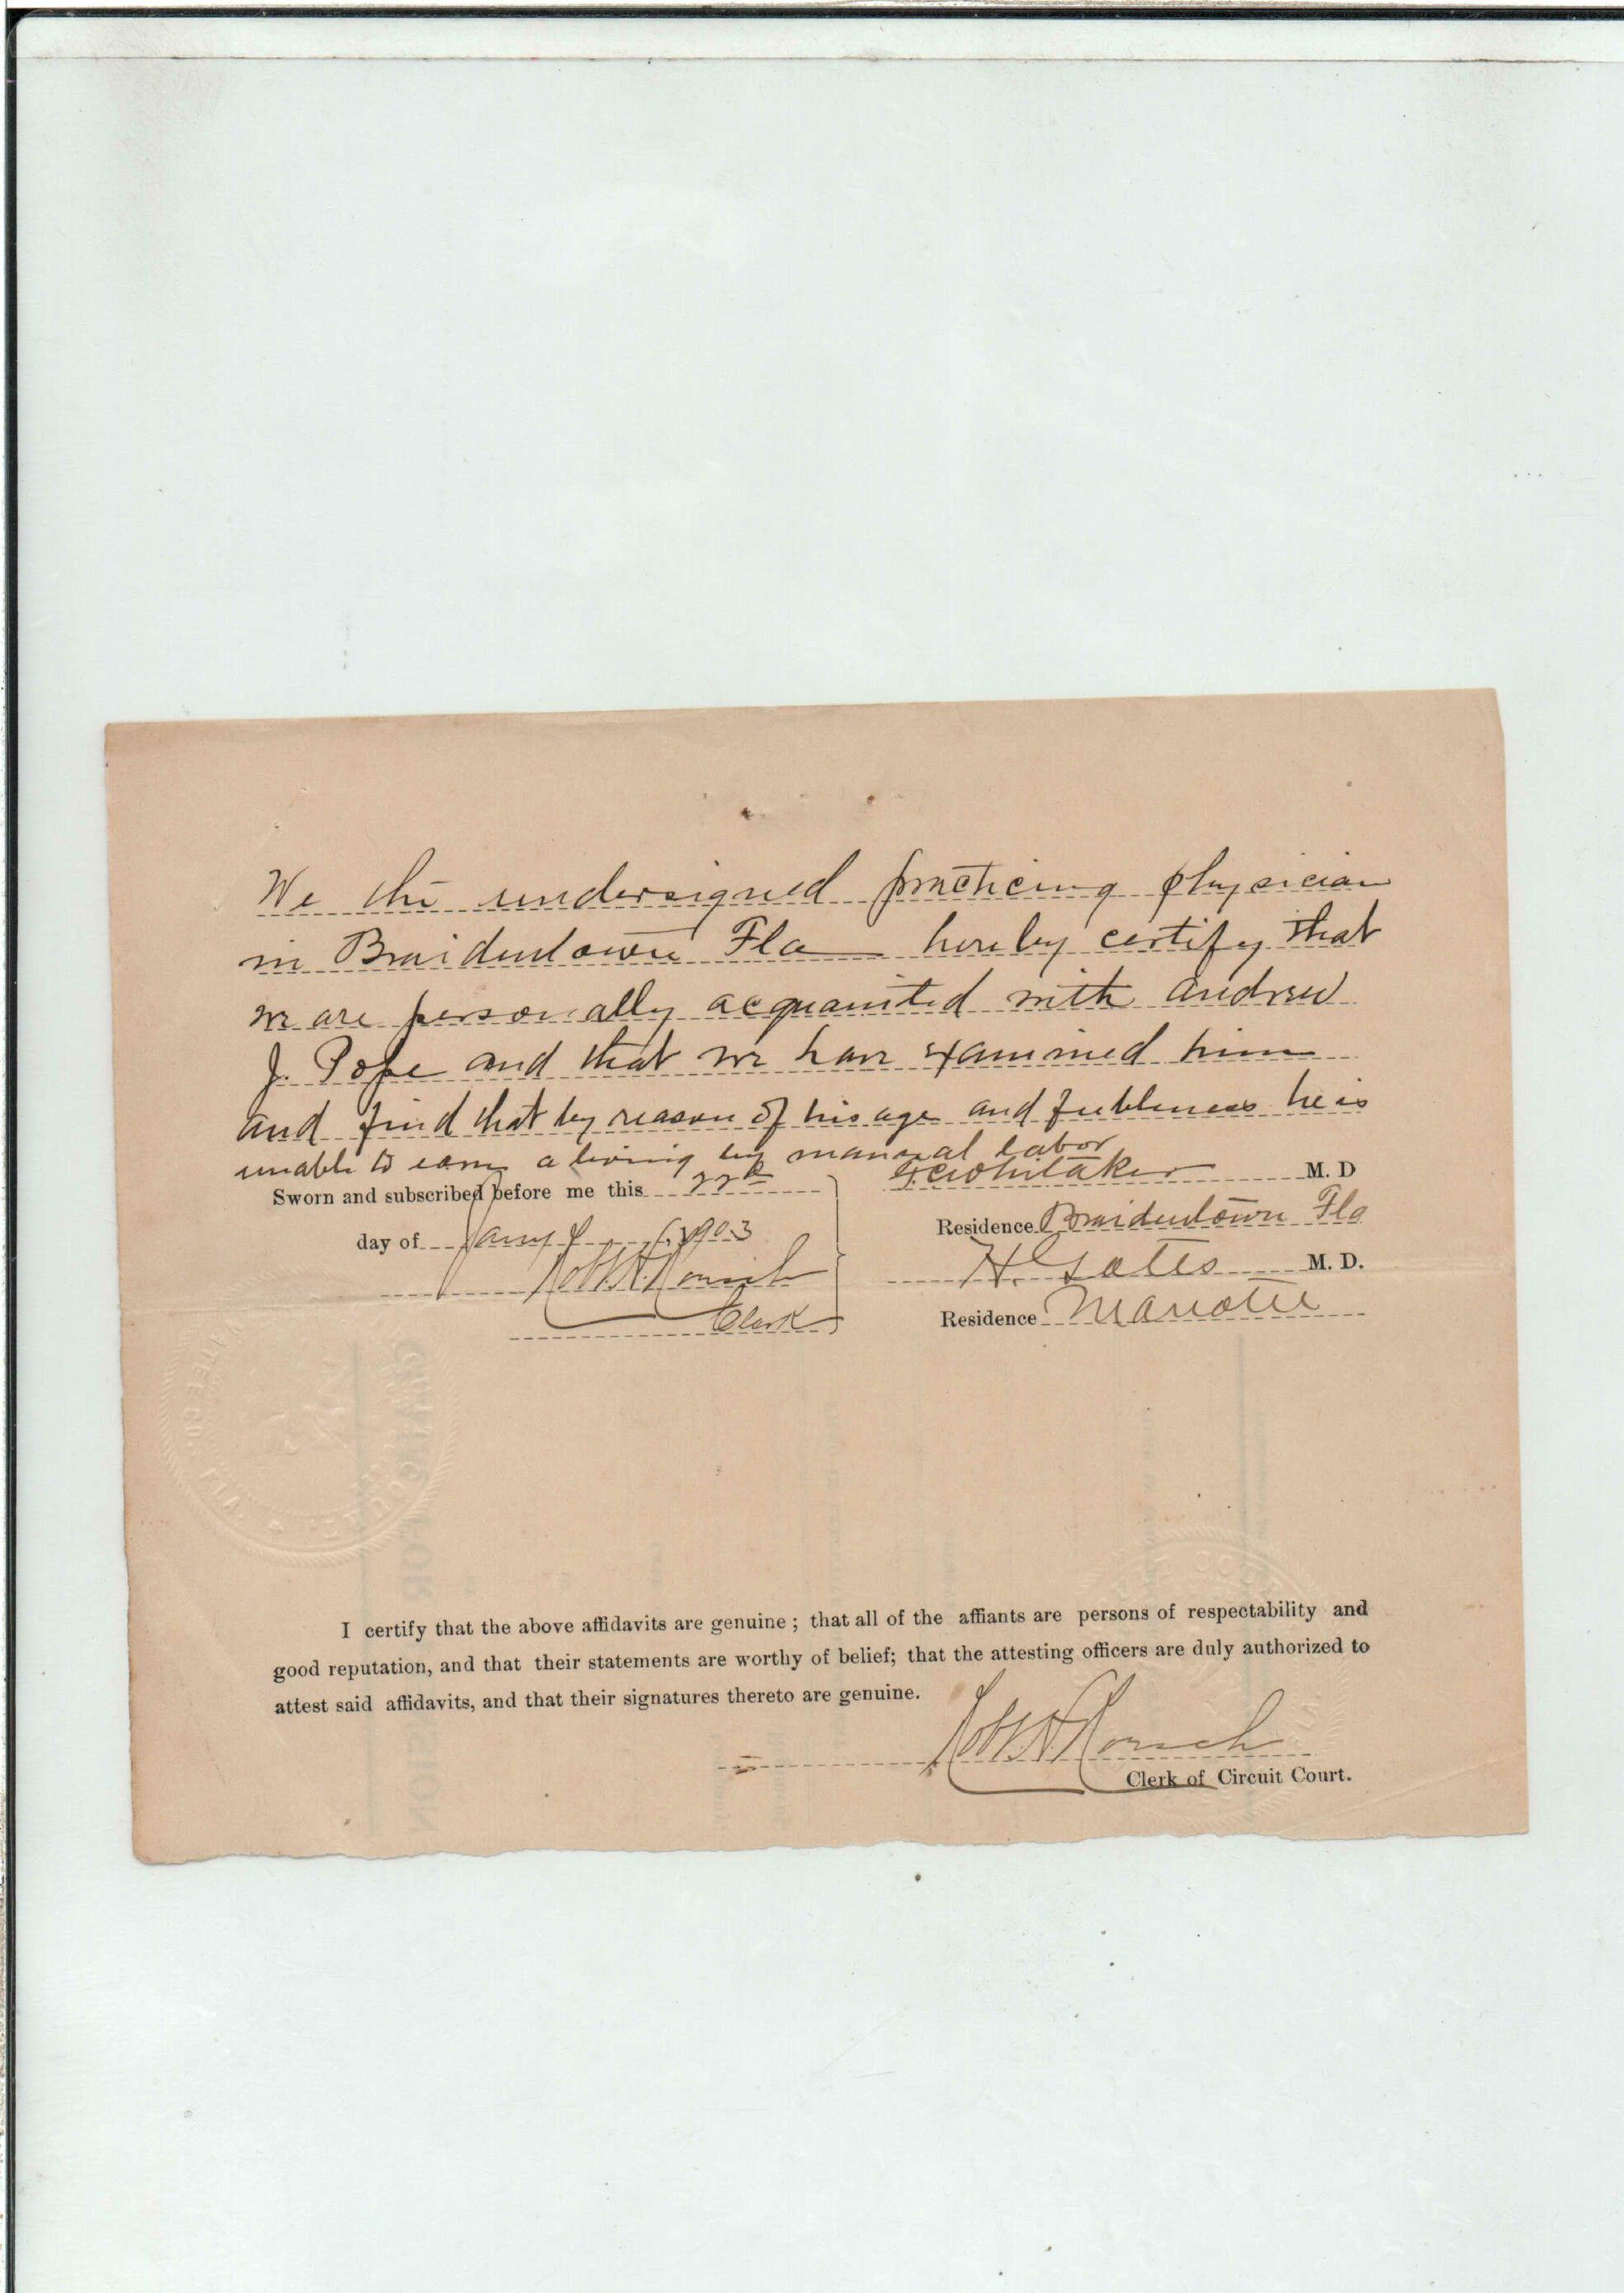 We the undersigned practicing physician
in Braidentown Fla hereby certify that
we are personally acquainted with Andrew
J. Pope and that we have examined him
and find that by reason of his age and feebleness he is
unable to earn a living by manual labor
Sworn and subscribed before me this 22d
day of Jany 1903
Robt. H. Roesch
Clerk
Whitaker M. D
Residence Braidentown Fla
H. Gates M. D.
Residence Manatee
MANATEE CO. FLA.
I certify that the above affidavits are genuine ; that all of the affiants are persons of respectability and
good reputation, and that their statements are worthy of belief; that the attesting officers are duly authorized to
attest said affidavits, and that their signatures thereto are genuine.
Robt. H. Roesch
Clerk of Circuit Court.